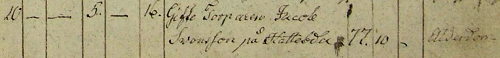 10 — — 5. — 16. Gifte Torparen Jacob
Svensson på Hattebola 77. 10 – Ålderdom